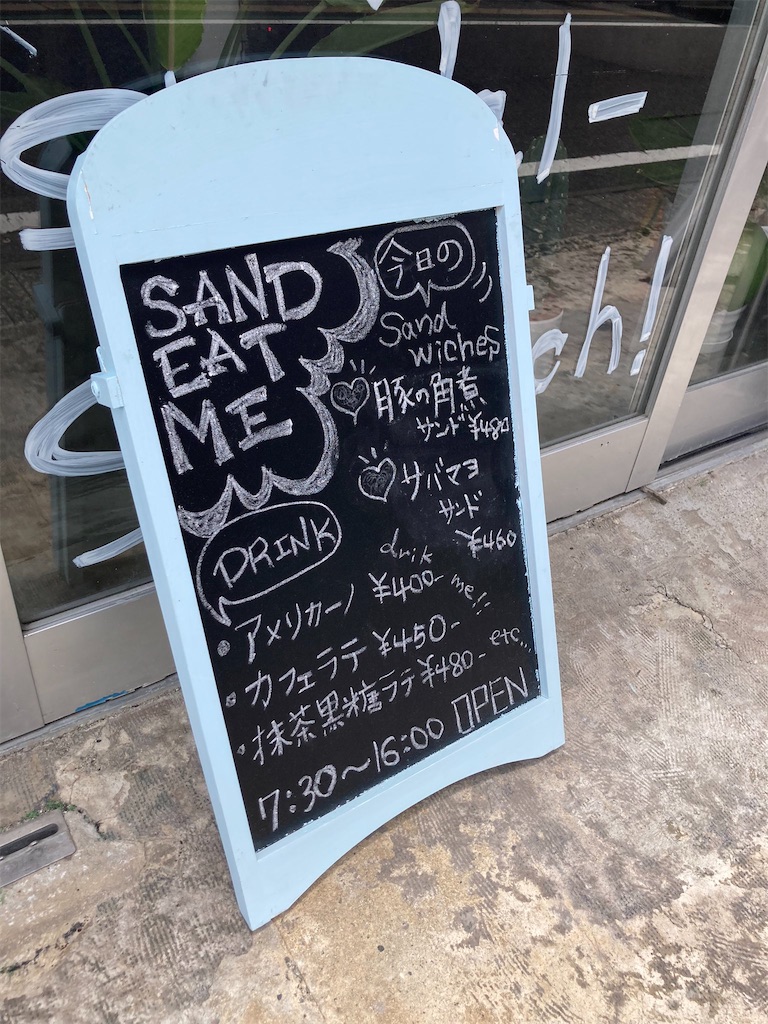 SAND
EAT
ME
今日の
Sand
wiches
豚の角煮
サンド ¥480
サバマヨ
サンド
¥460
DRINK
drik
me!!
・アメリカーノ ¥400-
・カフェラテ ¥450-
・抹茶黒糖ラテ ¥480- etc...
7:30～16:00 OPEN
ch!